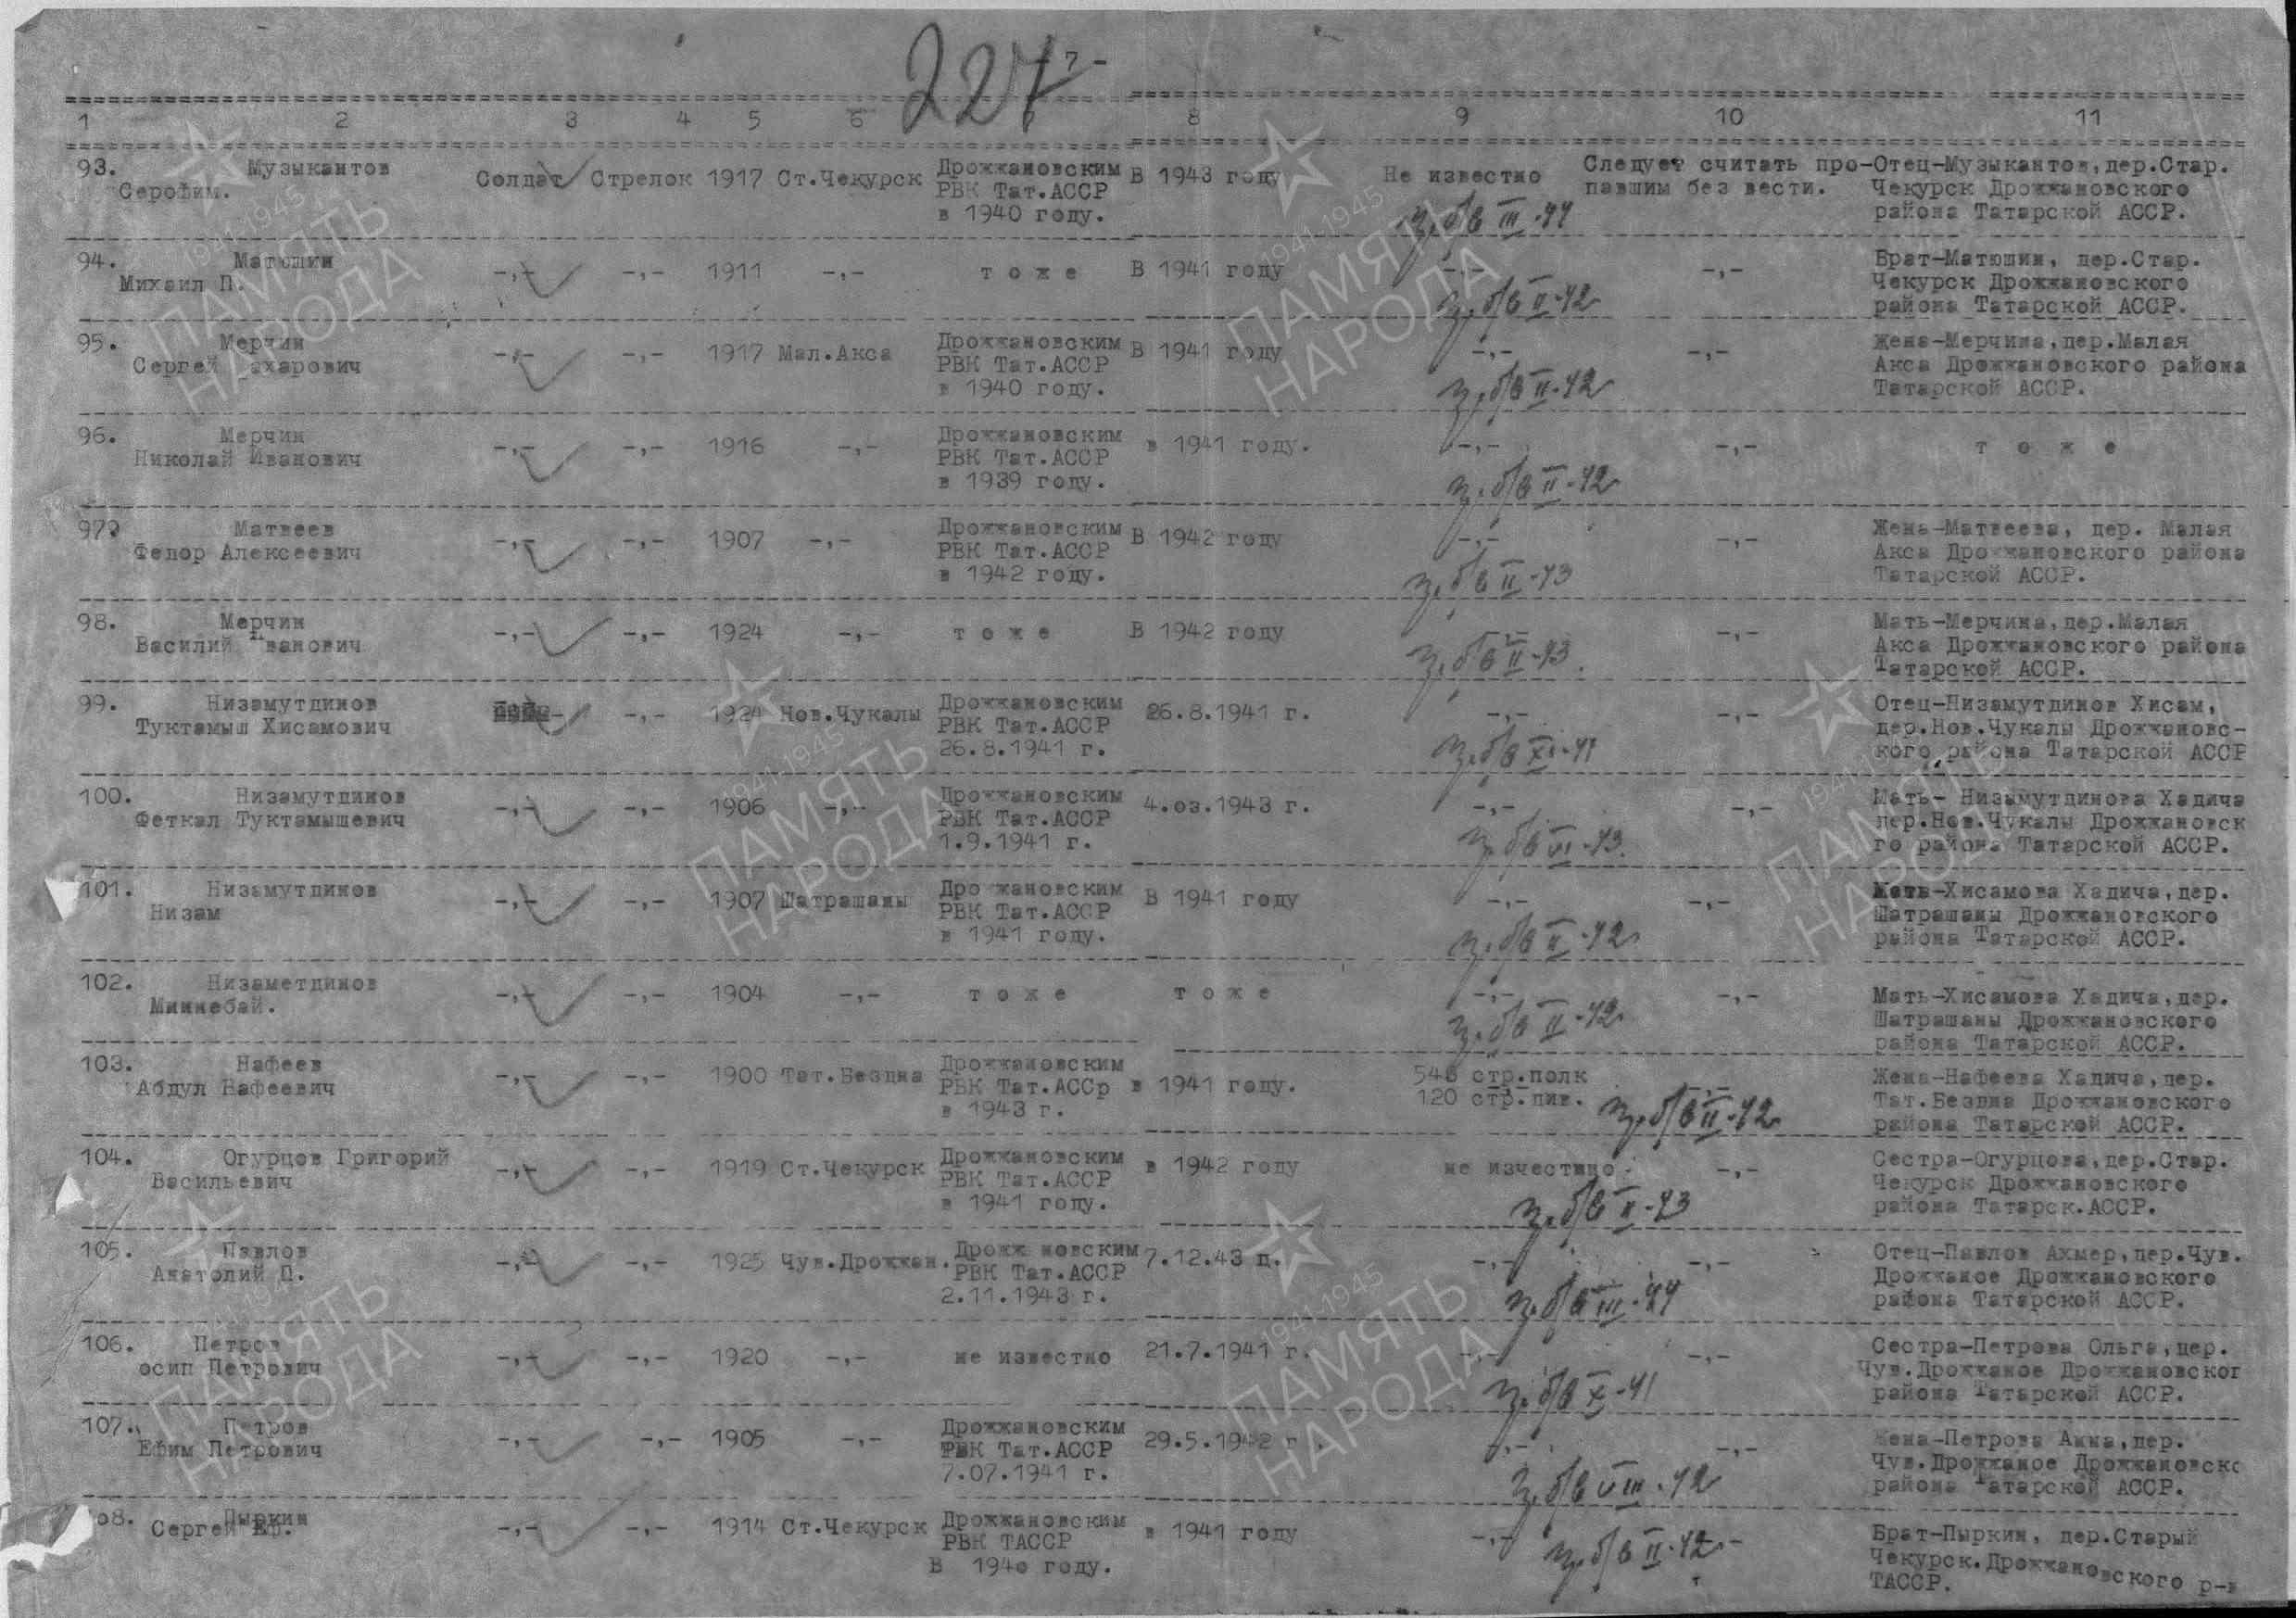 227
7-
1 2 3 4 5 6 8 9 10 11
93. Музыкантов Серофим. Солдат Стрелок 1917 Ст.Чекурск Дрожжановским РВК Тат.АССР в 1940 году. В 1943 году Не известно Следует считать про-павшим без вести. Отец-Музыкантов,дер.Стар. Чекурск Дрожжановского района Татарской АССР.
з. б/в III-44
94. Матюшин Михаил П. -,- -,- 1911 -,- т о ж е В 1941 году -,- -,- Брат-Матюшин, дер.Стар. Чекурск Дрожжановского района Татарской АССР.
з. б/в II-42
95. Мерчин Сергей ахарович -,- -,- 1917 Мал.Акса Дрожжановским РВК Тат.АССР в 1940 году. В 1941 году -,- -,- Жена-Мерчина,дер.Малая Акса Дрожжановского района Татарской АССР.
з. б/в II-42
96. Мерчин Николай Иванович -,- -,- 1916 -,- Дрожжановским РВК Тат.АССР в 1939 году. в 1941 году. -,- -,- т о ж е
з. б/в II-42
97. Матвеев Федор Алексеевич -,- -,- 1907 -,- Дрожжановским РВК Тат.АССР в 1942 году. В 1942 году -,- -,- Жена-Матвеева, дер. Малая Акса Дрожжановского района Татарской АССР.
з. б/в II-43
98. Мерчин Василий Иванович -,- -,- 1924 -,- т о ж е В 1942 году -,- -,- Мать-Мерчина,дер.Малая Акса Дрожжановского района Татарской АССР.
з. б/в II-43
99. Низамутдинов Туктамыш Хисамович -,- 1924 Нов.Чукалы Дрожжановским РВК Тат.АССР 26.8.1941 г. 26.8.1941 г. -,- -,- Отец-Низамутдинов Хисам, дер.Нов.Чукалы Дрожжановс-кого района Татарской АССР
з. б/в XI-41
100. Низамутдинов Феткал Туктамышевич -,- -,- 1906 -,- Дрожжановским РВК Тат.АССР 1.9.1941 г. 4.оз.1943 г. -,- -,- Мать- Низамутдинова Хадича дер.Нов.Чукалы Дрожжановск го района Татарской АССР.
з. б/в VI-43.
101. Низамутдинов Низам -,- -,- 1907 Шатрашаны Дро жановским РВК Тат.АССР в 1941 году. В 1941 году -,- -,- Мать-Хисамова Хадича,дер. Шатрашаны Дрожжановского района Татарской АССР.
з. б/в II-42
102. Низаметдинов Миннебай. -,- -,- 1904 -,- т о ж е т о ж е -,- -,- Мать-Хисамова Хадича,дер. Шатрашаны Дрожжановского района Татарской АССР.
з. б/в II-42
103. Нафеев Абдул Нафеевич -,- -,- 1900 Тат.Бездна Дрожжановским РВК Тат.АССр в 1943 г. в 1941 году. 548 стр.полк 120 стр.див. -,- Жена-Нафеева Хадича,дер. Тат.Бездна Дрожжановского района Татарской АССР.
з. б/в II-42
104. Огурцов Григорий Васильевич -,- -,- 1919 Ст.Чекурск Дрожжановским РВК Тат.АССР в 1941 году. в 1942 году не изчестино -,- Сестра-Огурцова,дер.Стар. Чекурск Дрожжановского района Татарск.АССР.
з. б/в II-43
105. Павлов Анатолий П. -,- -,- 1925 Чув.Дрожжан. Дрожж новским РВК Тат.АССР 2.11.1943 г. 7.12.43 д. -,- -,- Отец-Павлов Ахмер,дер.Чув. Дрожжаное Дрожжановского района Татарской АССР.
з. б/в III-44
106. Петров осип Петрович -,- -,- 1920 -,- не известно 21.7.1941 г. -,- -,- Сестра-Петрова Ольга,дер. Чув.Дрожжаное Дрожжановског района Татарской АССР.
з. б/в X-41
107. Петров Ефим Петрович -,- -,- 1905 -,- Дрожжановским РВК Тат.АССР 7.07.1941 г. 29.5.1942 г. -,- -,- Жена-Петрова Анна,дер. Чув.Дрожжаное Дрожжановскс района Татарской АССР.
з. б/в VIII-42
о8. Пыркин Сергей Еф. -,- -,- 1914 Ст.Чекурск Дрожжановским РВК ТАССР В 194о году. в 1941 году -,- Брат-Пыркин, дер.Старый Чекурск.Дрожжановского р-в ТАССР.
з. б/в II-42
1941-1945
ПАМЯТЬ
НАРОДА
1941-1945
ПАМЯТЬ
НАРОДА
1941-1945
ПАМЯТЬ
НАРОДА
1941-1945
ПАМЯТЬ
НАРОДА
1941-1945
ПАМЯТЬ
НАРОДА
1941-1945
ПАМЯТЬ
НАРОДА